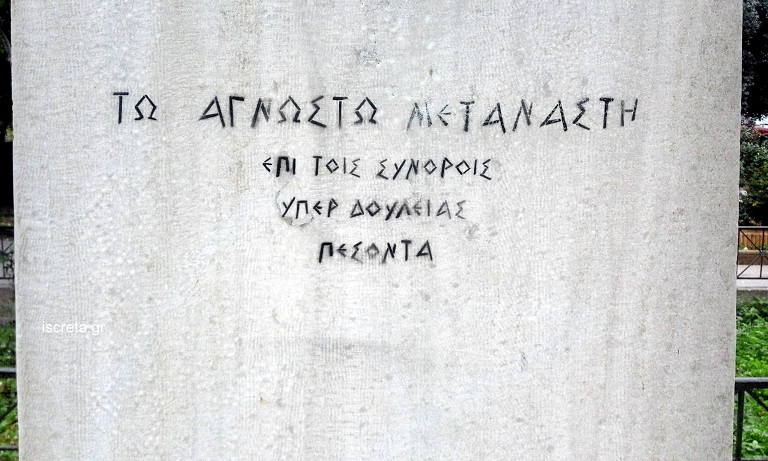 ΤΩ ΑΓΝΩΣΤΩ ΜΕΤΑΝΑΣΤΗ
ΕΠΙ ΤΟΙΣ ΣΥΝΟΡΟΙΣ
ΥΠΕΡ ΔΟΥΛΕΙΑΣ
ΠΕΣΟΝΤΑ
iscreta.gr